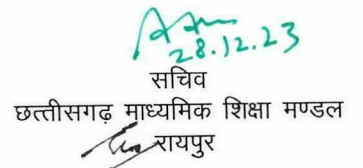 28.12.23
सचिव
छत्तीसगढ़ माध्यमिक शिक्षा मण्डल
रायपुर